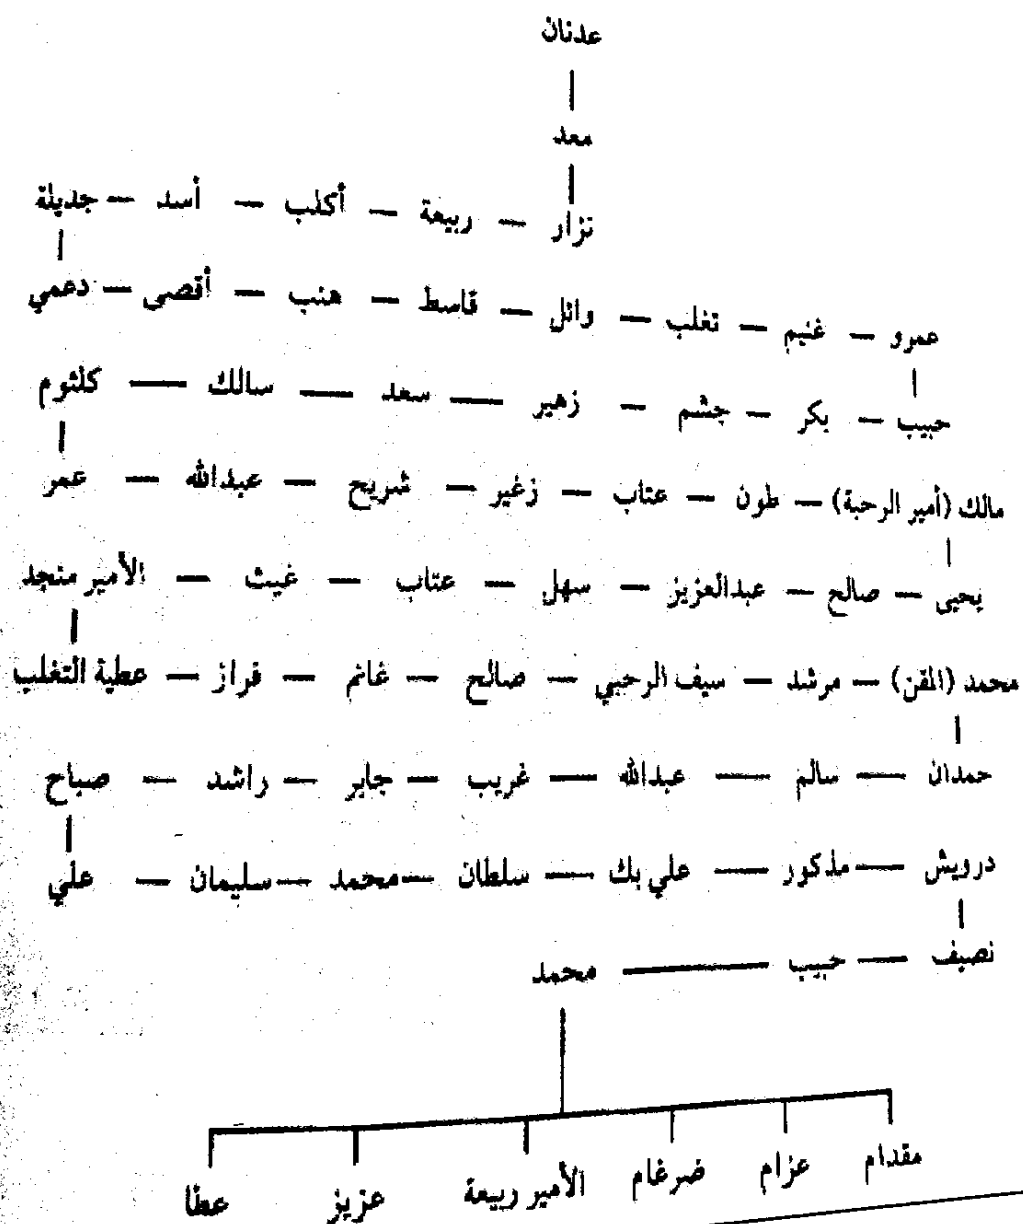 عدنان
معد
نزار — ربيعة — أكلب — أسد — جديلة
عمرو — غنيم — تغلب — وائل — قاسط — هنب — أقصى — دعمي
حبيب — بكر — جشم — زهير — سعد — سالك — كلثوم
مالك (أمير الرحبة) — طون — عتاب — زغير — شريح — عبدالله — عمر
يحيى — صالح — عبدالعزيز — سهل — عتاب — غيث — الأمير منجد
محمد (المقن) — مرشد — سيف الرحبي — صالح — غانم — فراز — عطية التغلب
حمدان — سالم — عبدالله — غريب — جابر — راشد — صباح
درويش — مذكور — علي بك — سلطان — محمد — سليمان — علي
نصيف — حبيب — محمد
مقدام عزام ضرغام الأمير ربيعة عزيز عطا